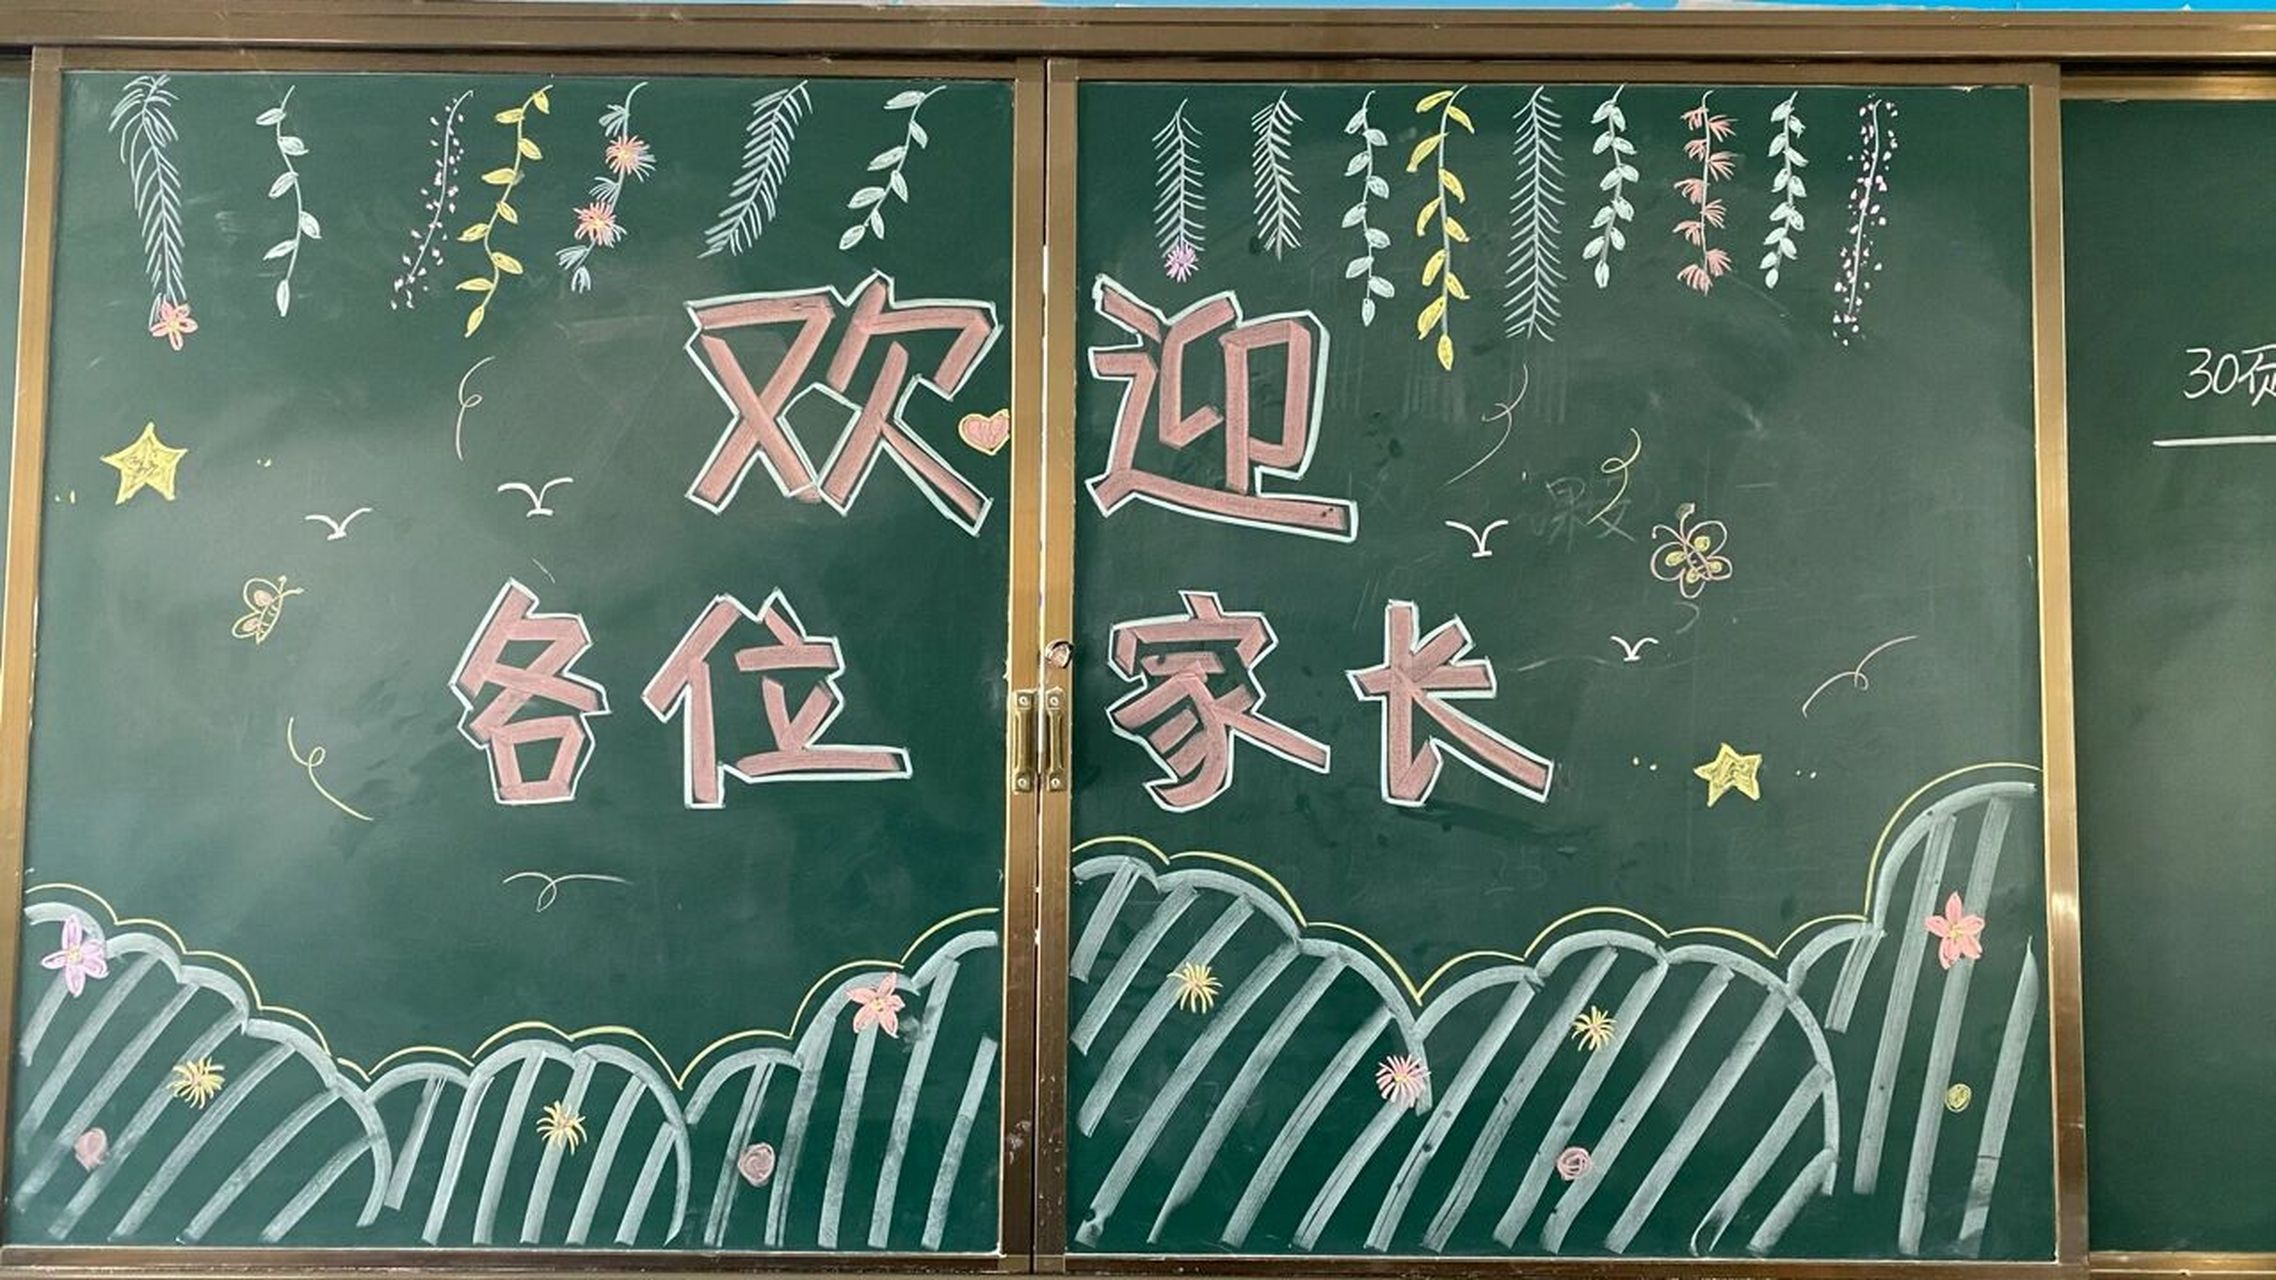 欢迎
各位家长
30